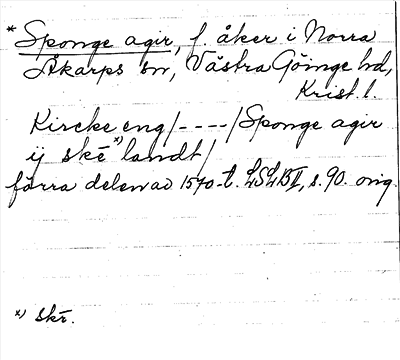 * Sponge agir, f. åker i Norra
Åkarps sn, Västra Göinge hd,
Krist. l.
Kircke eng/----/Sponge agir
ij skē x) landt/
förra delen av 1570-t. LSLB II, s. 90. orig.
x) skr.